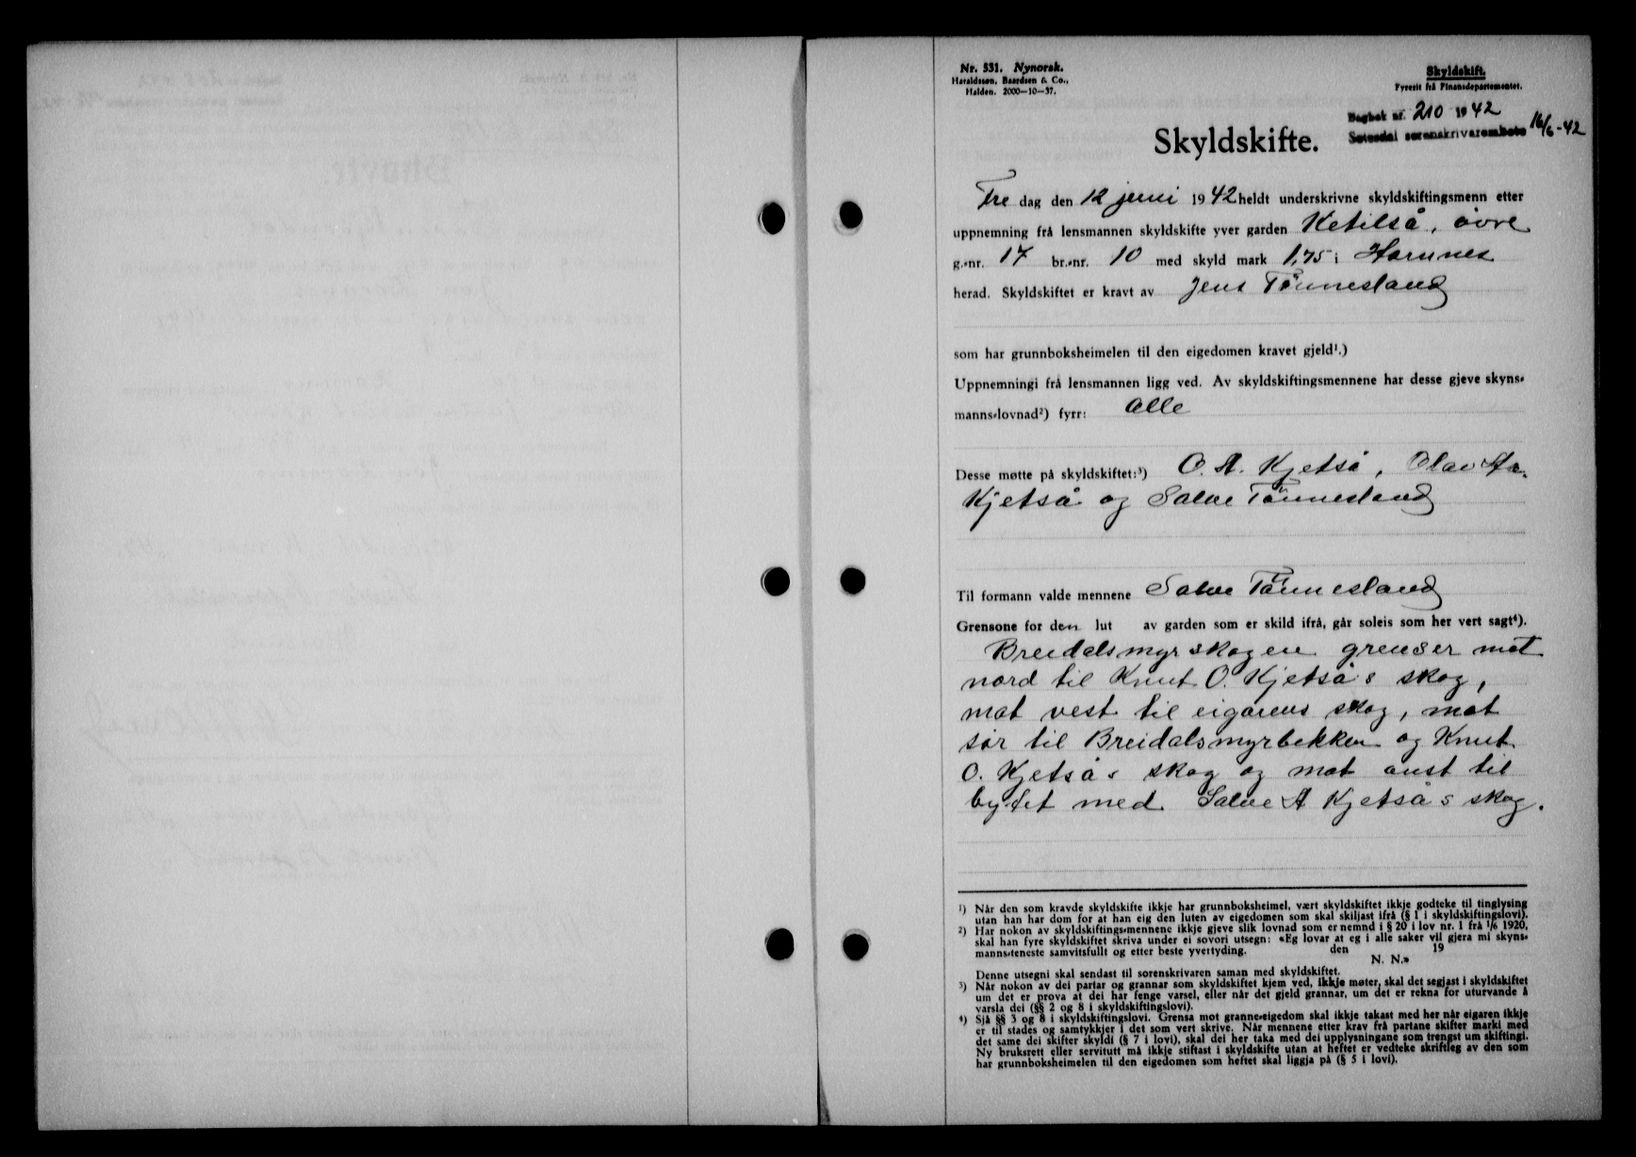 Nr. 531. Nynorsk.
Haraldssøn, Baardsen & Co.,
Halden. 2000—10—37.
Skyldskift.
Fyrerit frå Finansdepartementet.
Dagbok nr. 210 1942
Setesdal sorenskrivarembete 16/6-42
Skyldskifte.
Fre dag den 12 juni 1942 heldt underskrivne skyldskiftingsmenn etter
uppnemning frå lensmannen skyldskifte yver garden Ketilså, øvre
g.-nr. 17 br.-nr. 10 med skyld mark 1,75 i Hornnes
herad. Skyldskiftet er kravt av Jens Tönnesland
som har grunnboksheimelen til den eigedomen kravet gjeld¹.)
Uppnemningi frå lensmannen ligg ved. Av skyldskiftingsmennene har desse gjeve skyns-
manns-lovnad²) fyrr: Alle
Desse møtte på skyldskiftet:³) O. A. Kjetså, Olav Aa.
Kjetså og Salve Tönnesland
Til formann valde mennene Salve Tönnesland
Grensone for den lut av garden som er skild ifrå, går soleis som her vert sagt⁴).
Breidalsmyrskogen grenser mot
nord til Knut O. Kjetså's skog,
mot vest til eigarens skog, mot
sør til Breidalsmyrbekken og Knut
O. Kjetså's skog og mot aust til
bytet med Salve A Kjetså's skog.
¹) Når den som kravde skyldskifte ikkje har grunnboksheimel, vært skyldskiftet ikkje godteke til tinglysing
utan han har dom for at han eig den luten av eigedomen som skal skiljast ifrå (§ 1 i skyldskiftingslovi).
²) Har nokon av skyldskiftings-mennene ikkje gjeve slik lovnad som er nemnd i § 20 i lov nr. 1 frå 1/6 1920,
skal han fyre skyldskiftet skriva under ei sovori utsegn: «Eg lovar at eg i alle saker vil gjera mi skyns-
manns-teneste samvitsfullt og etter beste yvertyding. den 19
N. N.»
Denne utsegni skal sendast til sorenskrivaren saman med skyldskiftet.
³) Når nokon av dei partar og grannar som skyldskiftet kjem ved, ikkje møter, skal det segjast i skyldskiftet
um det er prova at dei har fenge varsel, eller når det gjeld grannar, um det er rekna for uturvande å
varsla dei (§§ 2 og 8 i skyldskiftingslovi).
⁴) Sjå §§ 3 og 8 i skyldskiftingslovi. Grensa mot granne-eigedom skal ikkje takast med her når eigaren ikkje
er til stades og samtykkjer i det som vert skrive. Når mennene etter krav frå partane skifter marki med
det same dei skifter skyldi (§ 7 i lovi), skal dei her taka med dei upplysningane som trengst um skiftingi.
Ny bruksrett eller servitutt må ikkje stiftast i skyldskifte utan at heftet er vedteke skriftleg av den som
har grunnboksheimelen til den eigedomen som heftet skal liggja på (§ 5 i lovi).